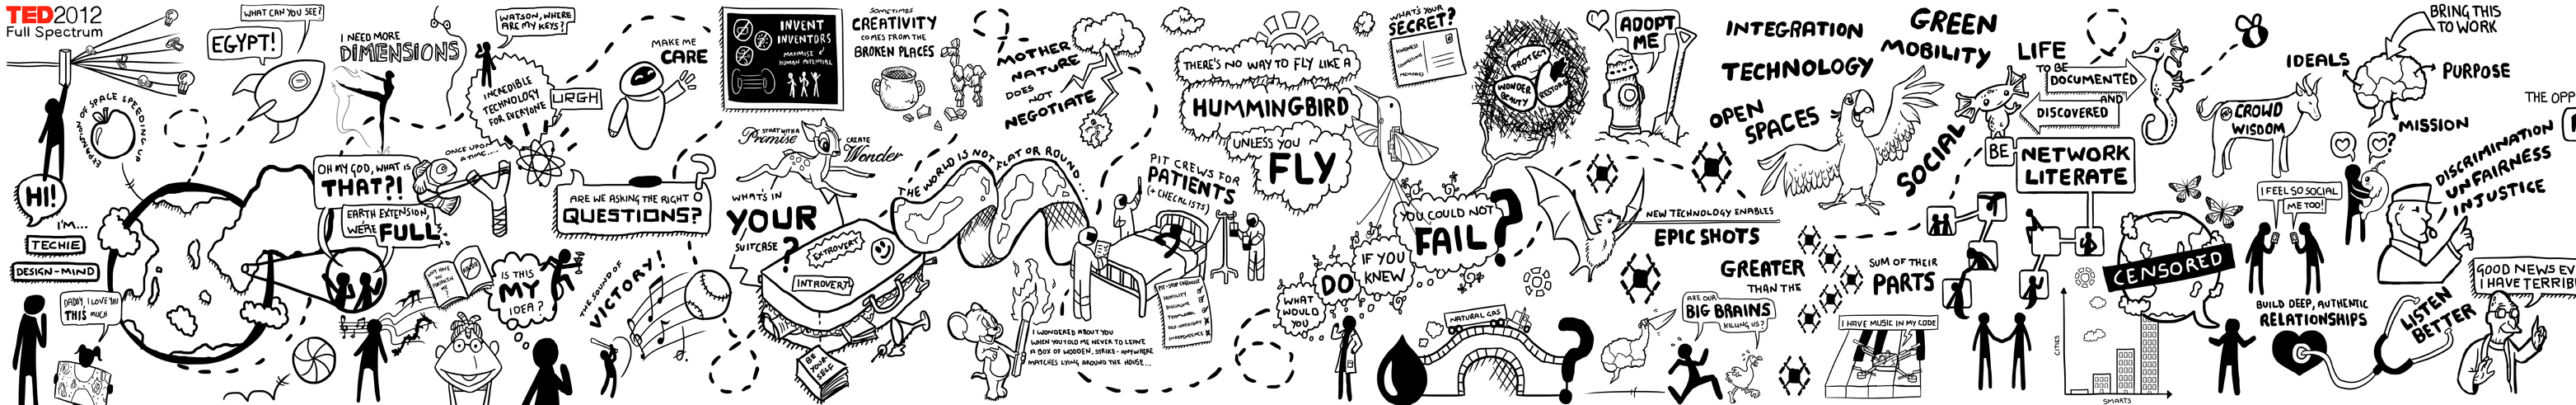 TED2012
Full Spectrum
EXPANSION OF SPACE SPEEDING UP
HI!
I'M...
TECHIE
DESIGN-MIND
DADDY, I LOVE YOU
THIS MUCH
WHAT CAN YOU SEE?
EGYPT!
I NEED MORE
DIMENSIONS
OH MY GOD, WHAT IS
THAT?!
EARTH EXTENSION,
WE'RE FULL
WATSON, WHERE
ARE MY KEYS?
INCREDIBLE
TECHNOLOGY
FOR EVERYONE
URGH
ONCE UPON
A TIME....
IS THIS
MY
IDEA?
MAKE ME
CARE
ARE WE ASKING THE RIGHT
QUESTIONS?
THE SOUND OF
VICTORY!
INVENT
INVENTORS
MAXIMISE
HUMAN POTENTIAL
START WITH A
Promise
CREATE
Wonder
WHAT'S IN
YOUR
SUITCASE
?
EXTROVERT
INTROVERT
BE
YOUR
SELF
SOMETIMES
CREATIVITY
COMES FROM THE
BROKEN PLACES
THE WORLD IS NOT FLAT OR ROUND...
MOTHER
NATURE
DOES
NOT
NEGOTIATE
I WONDERED ABOUT YOU
WHEN YOU TOLD ME NEVER TO LEAVE
A BOX OF WOODEN, STRIKE-ANYWHERE
MATCHES LYING AROUND THE HOUSE...
PIT CREWS FOR
PATIENTS
(+ CHECKLISTS)
PIT-STOP CHECKLIST
HUMILITY
DISCIPLINE
TEAMWORK
INDEPENDENCE
THERE'S NO WAY TO FLY LIKE A
HUMMINGBIRD
UNLESS YOU
FLY
WHAT
WOULD
YOU
DO
IF YOU
KNEW
YOU COULD NOT
FAIL?
WHAT'S YOUR
SECRET?
PROTECT
WONDER
BEAUTY
RESTORE
ADOPT
ME
NATURAL GAS
NEW TECHNOLOGY ENABLES
EPIC SHOTS
GREATER
THAN THE
SUM OF THEIR
PARTS
ARE OUR
BIG BRAINS
KILLING US?
I HAVE MUSIC IN MY CODE
INTEGRATION
TECHNOLOGY
OPEN
SPACES
GREEN
MOBILITY
SOCIAL
LIFE
TO BE
DOCUMENTED
AND
DISCOVERED
BE
NETWORK
LITERATE
CENSORED
CITIES
SMARTS
CROWD
WISDOM
I FEEL SO SOCIAL
ME TOO!
BUILD DEEP, AUTHENTIC
RELATIONSHIPS
LISTEN
BETTER
BRING THIS
TO WORK
IDEALS
PURPOSE
MISSION
THE OPP
DISCRIMINATION
UNFAIRNESS
INJUSTICE
GOOD NEWS EV
I HAVE TERRIB